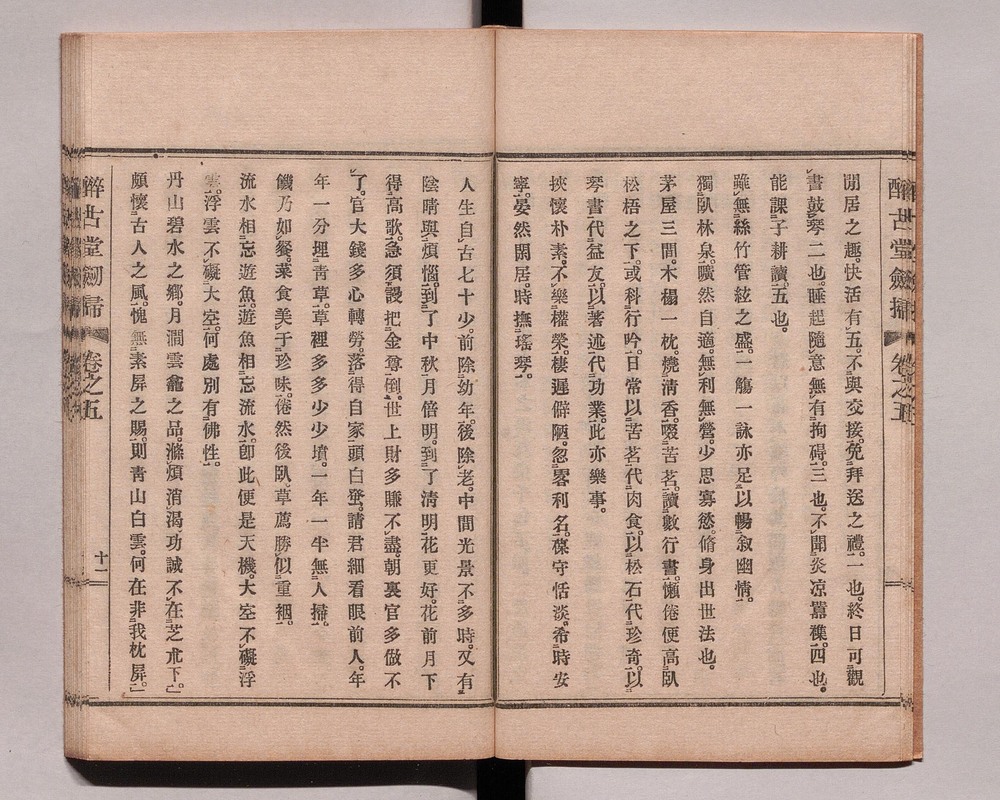 醉古堂劍掃 卷之五
閒居之趣。快活有五。不與交接。免拜送之禮。一也。終日可觀
書鼓琴二也。睡起隨意。無有拘碍。三也。不聞炎凉囂襍。四也。
能課子耕讀。五也。
雖無絲竹管絃之盛。一觴一詠亦足以暢叙幽情。
獨臥林泉。曠然自適。無利無營。少思寡慾。脩身出世法也。
茅屋三間。木榻一枕。燒淸香。啜苦茗。讀數行書。懶倦便高臥
松梧之下。或科行吟。日常以苦茗代肉食。以松石代珍奇。以
琴書代益友。以著述代功業。此亦樂事。
挾懷朴素。不樂權榮。棲遲僻陋。忽畧利名。葆守恬淡。希時安
寧。晏然閑居。時撫瑤琴。
人生自古七十少。前除幼年後除老。中間光景不多時。又有
陰晴與煩惱。到了中秋月倍明。到了淸明花更好。花前月下
得高歌。急須謾把金尊倒。世上財多賺不盡。朝裏官多做不
了。官大錢多心轉勞。落得自家頭白蚤。請君細看眼前人。年
年一分埋靑草。草裡多多少少墳。一年一半無人掃。
饑乃如餐。菜食美于珍味。倦然後臥。草薦勝似重裀。
流水相忘遊魚。遊魚相忘流水。卽此便是天機。大空不礙浮
雲。浮雲不礙大空。何處別有佛性。
丹山碧水之鄕。月澗雲龕之品。滌煩消渴。功誠不在芝朮下。
頗懷古人之風。愧無素屏之賜。則靑山白雲。何在非我枕屏。
醉古堂劍掃 卷之五 十二